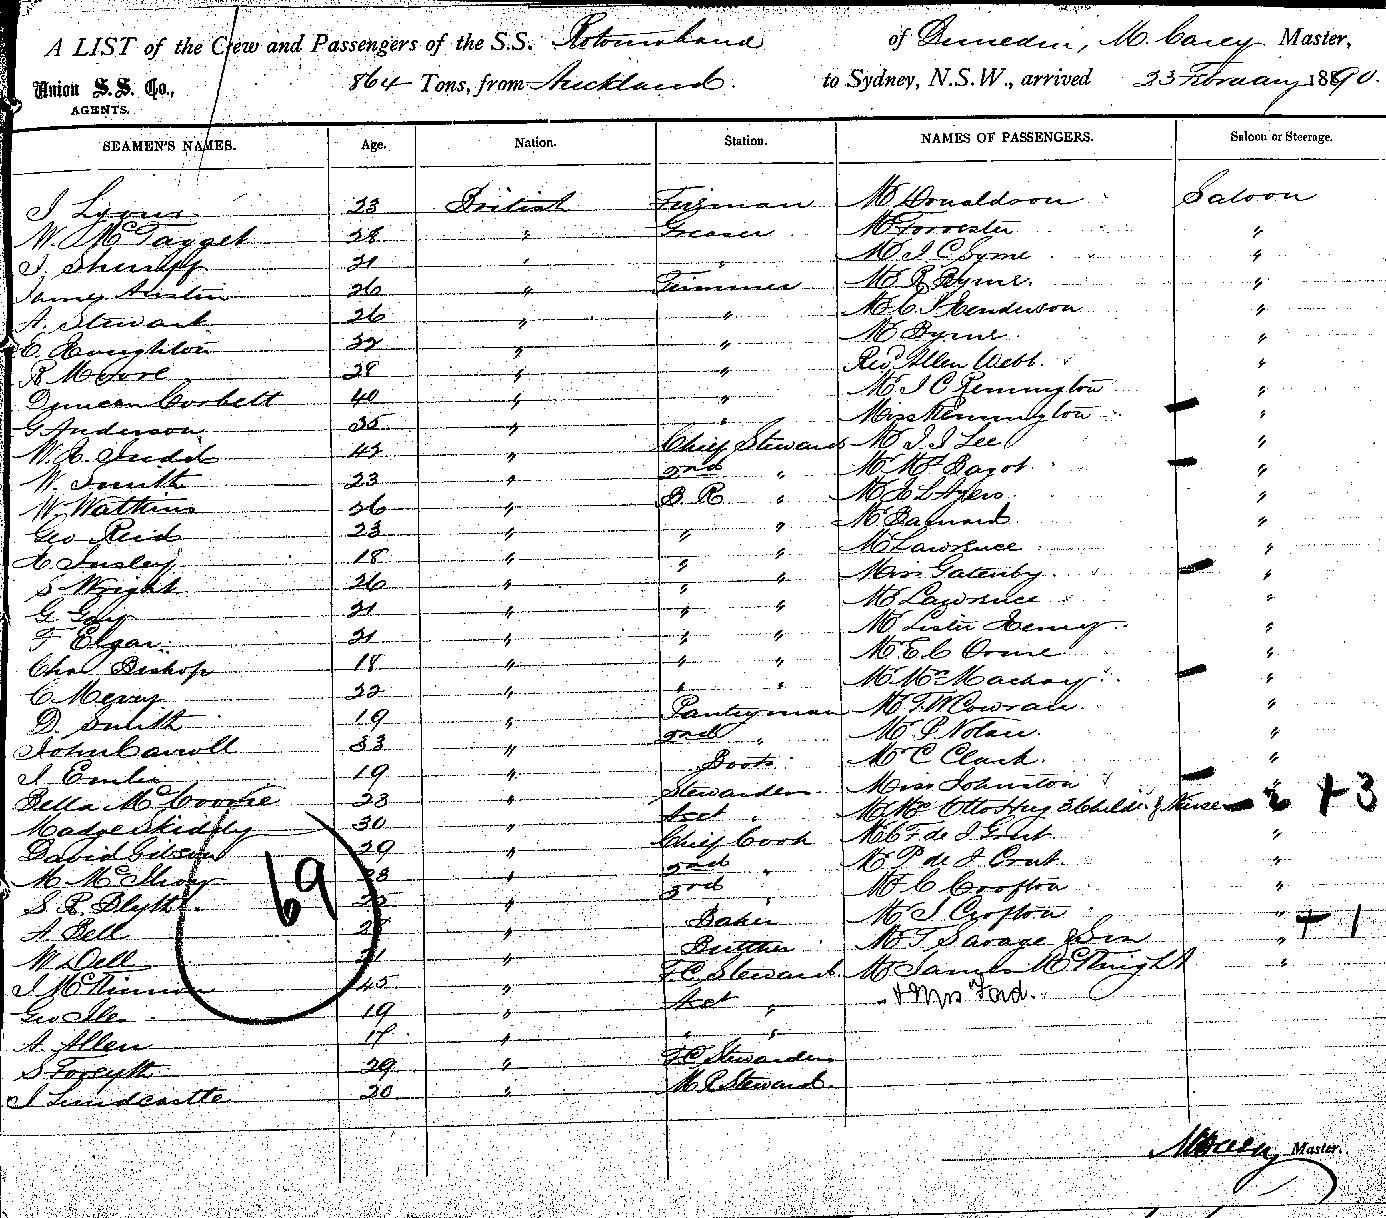 A LIST of the Crew and Passengers of the S.S. Rotomahana of Dunedin, M. Carey Master,
Union S.S. Co., AGENTS. 864 Tons, from Auckland. to Sydney, N.S.W., arrived 23 February 1890.
SEAMEN'S NAMES. Age. Nation. Station. NAMES OF PASSENGERS. Saloon or Steerage.
J Lyons 23 British Fireman Mr Donaldson Saloon
W. McTagget 28 " Greaser Mr Forrester "
J. Sherriff 21 " " Mr J C Syme "
James Austin 26 " Trimmer Mr R Byrne. "
A. Stewart 26 " " Mr C Henderson "
Houghton 32 " " Mr Byrne "
R Moore 28 " " Revd Allen Webb. "
Duncan Corbett 40 " " Mr J C Remington "
G. Anderson 35 " " Miss Remington "
W. Judd 42 " Chief Steward Mr J J Lee "
W. Smith 23 " 2nd " Mr Bagot "
W. Watkins 26 " B. R " Mr Ayers "
Geo Reid 23 " " " Mr Barnard "
Insley 18 " " " Mr Lawrence "
S Wright 26 " " " Miss Gatenby "
G. Gay 21 " " " Mr Lawrence "
F Elgar. 21 " " " Mr Lister Henry "
Chas Bishop 18 " " " Mr E C Orme "
C Merry 22 " " " McMackay "
D. Smith 19 " Pantryman Mr Cowran "
John Carroll 33 " 2nd " Mr P Nolan. "
J. Emlie 19 " Boots Mr C Clark "
Bella 23 " Stewardess Miss Johnston "
Madge Skiddy 30 " Asst " Otto Hug 3 Childn & Nurse 2 + 3
David Gibson 29 " Chief Cook Mr C F. de J Grut "
M. McIlroy 28 " 2nd " Mr P de J Grut. "
S. R. Blyth 25 " 3rd " Mr C Crofton "
A Bell " Baker Mr J Crofton " + 1
W Dell 21 " Butcher Mr T Savage & Son "
J McKinnon 45 " F.C. Steward Mr James McKnight "
Geo Iles 19 " Asst " + Mrs Ford.
A. Allen 17 " " "
S Forsyth 29 " F.C. Stewardess
J Lundcastle 20 " M.R. Steward.
69
M Carey Master.